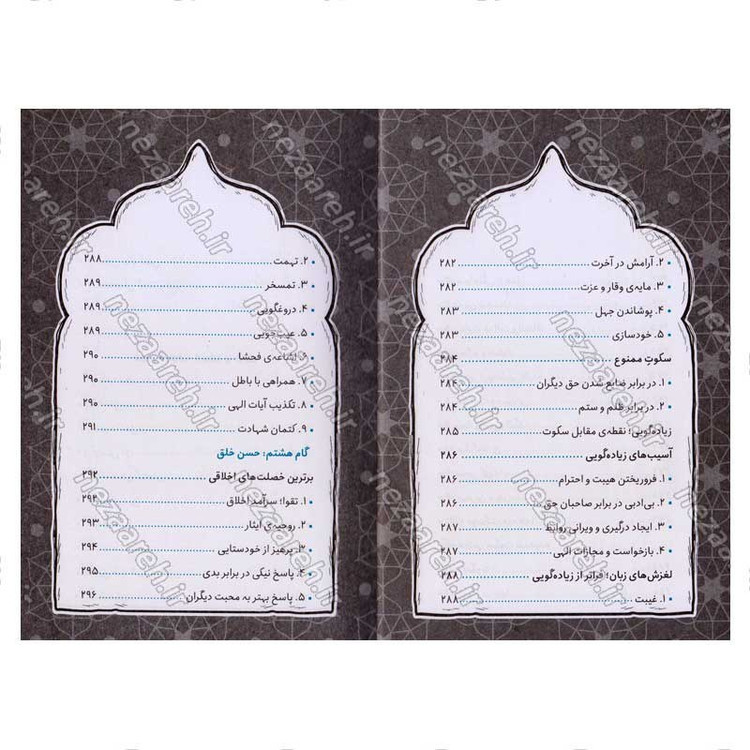 ۲. آرامش در آخرت ۲۸۲
۳. مایه‌ی وقار و عزت ۲۸۲
۴. پوشاندن جهل ۲۸۳
۵. خودسازی ۲۸۳
سکوتِ ممنوع ۲۸۴
۱. در برابر ضایع شدن حق دیگران ۲۸۴
۲. در برابر ظلم و ستم ۲۸۴
زیاده‌گویی؛ نقطه‌ی مقابل سکوت ۲۸۵
آسیب‌های زیاده‌گویی ۲۸۶
۱. فروریختن هیبت و احترام ۲۸۶
۲. بی‌ادبی در برابر صاحبان حق ۲۸۶
۳. ایجاد درگیری و ویرانی روابط ۲۸۷
۴. بازخواست و مجازات الهی ۲۸۷
لغزش‌های زبان؛ فراتر از زیاده‌گویی ۲۸۸
۱. غیبت ۲۸۸
۲. تهمت ۲۸۸
۳. تمسخر ۲۸۹
۴. دروغگویی ۲۸۹
۵. عیب‌جویی ۲۸۹
۶. اشاعه‌ی فحشا ۲۹۰
۷. همراهی با باطل ۲۹۰
۸. تکذیب آیات الهی ۲۹۰
۹. کتمان شهادت ۲۹۱
گام هشتم: حسن خلق
برترین خصلت‌های اخلاقی ۲۹۲
۱. تقوا؛ سرآمد اخلاق ۲۹۲
۲. روحیه‌ی ایثار ۲۹۳
۳. پرهیز از خودستایی ۲۹۴
۴. پاسخ نیکی در برابر بدی ۲۹۵
۵. پاسخ بهتر به محبت دیگران ۲۹۶
nezaareh.ir